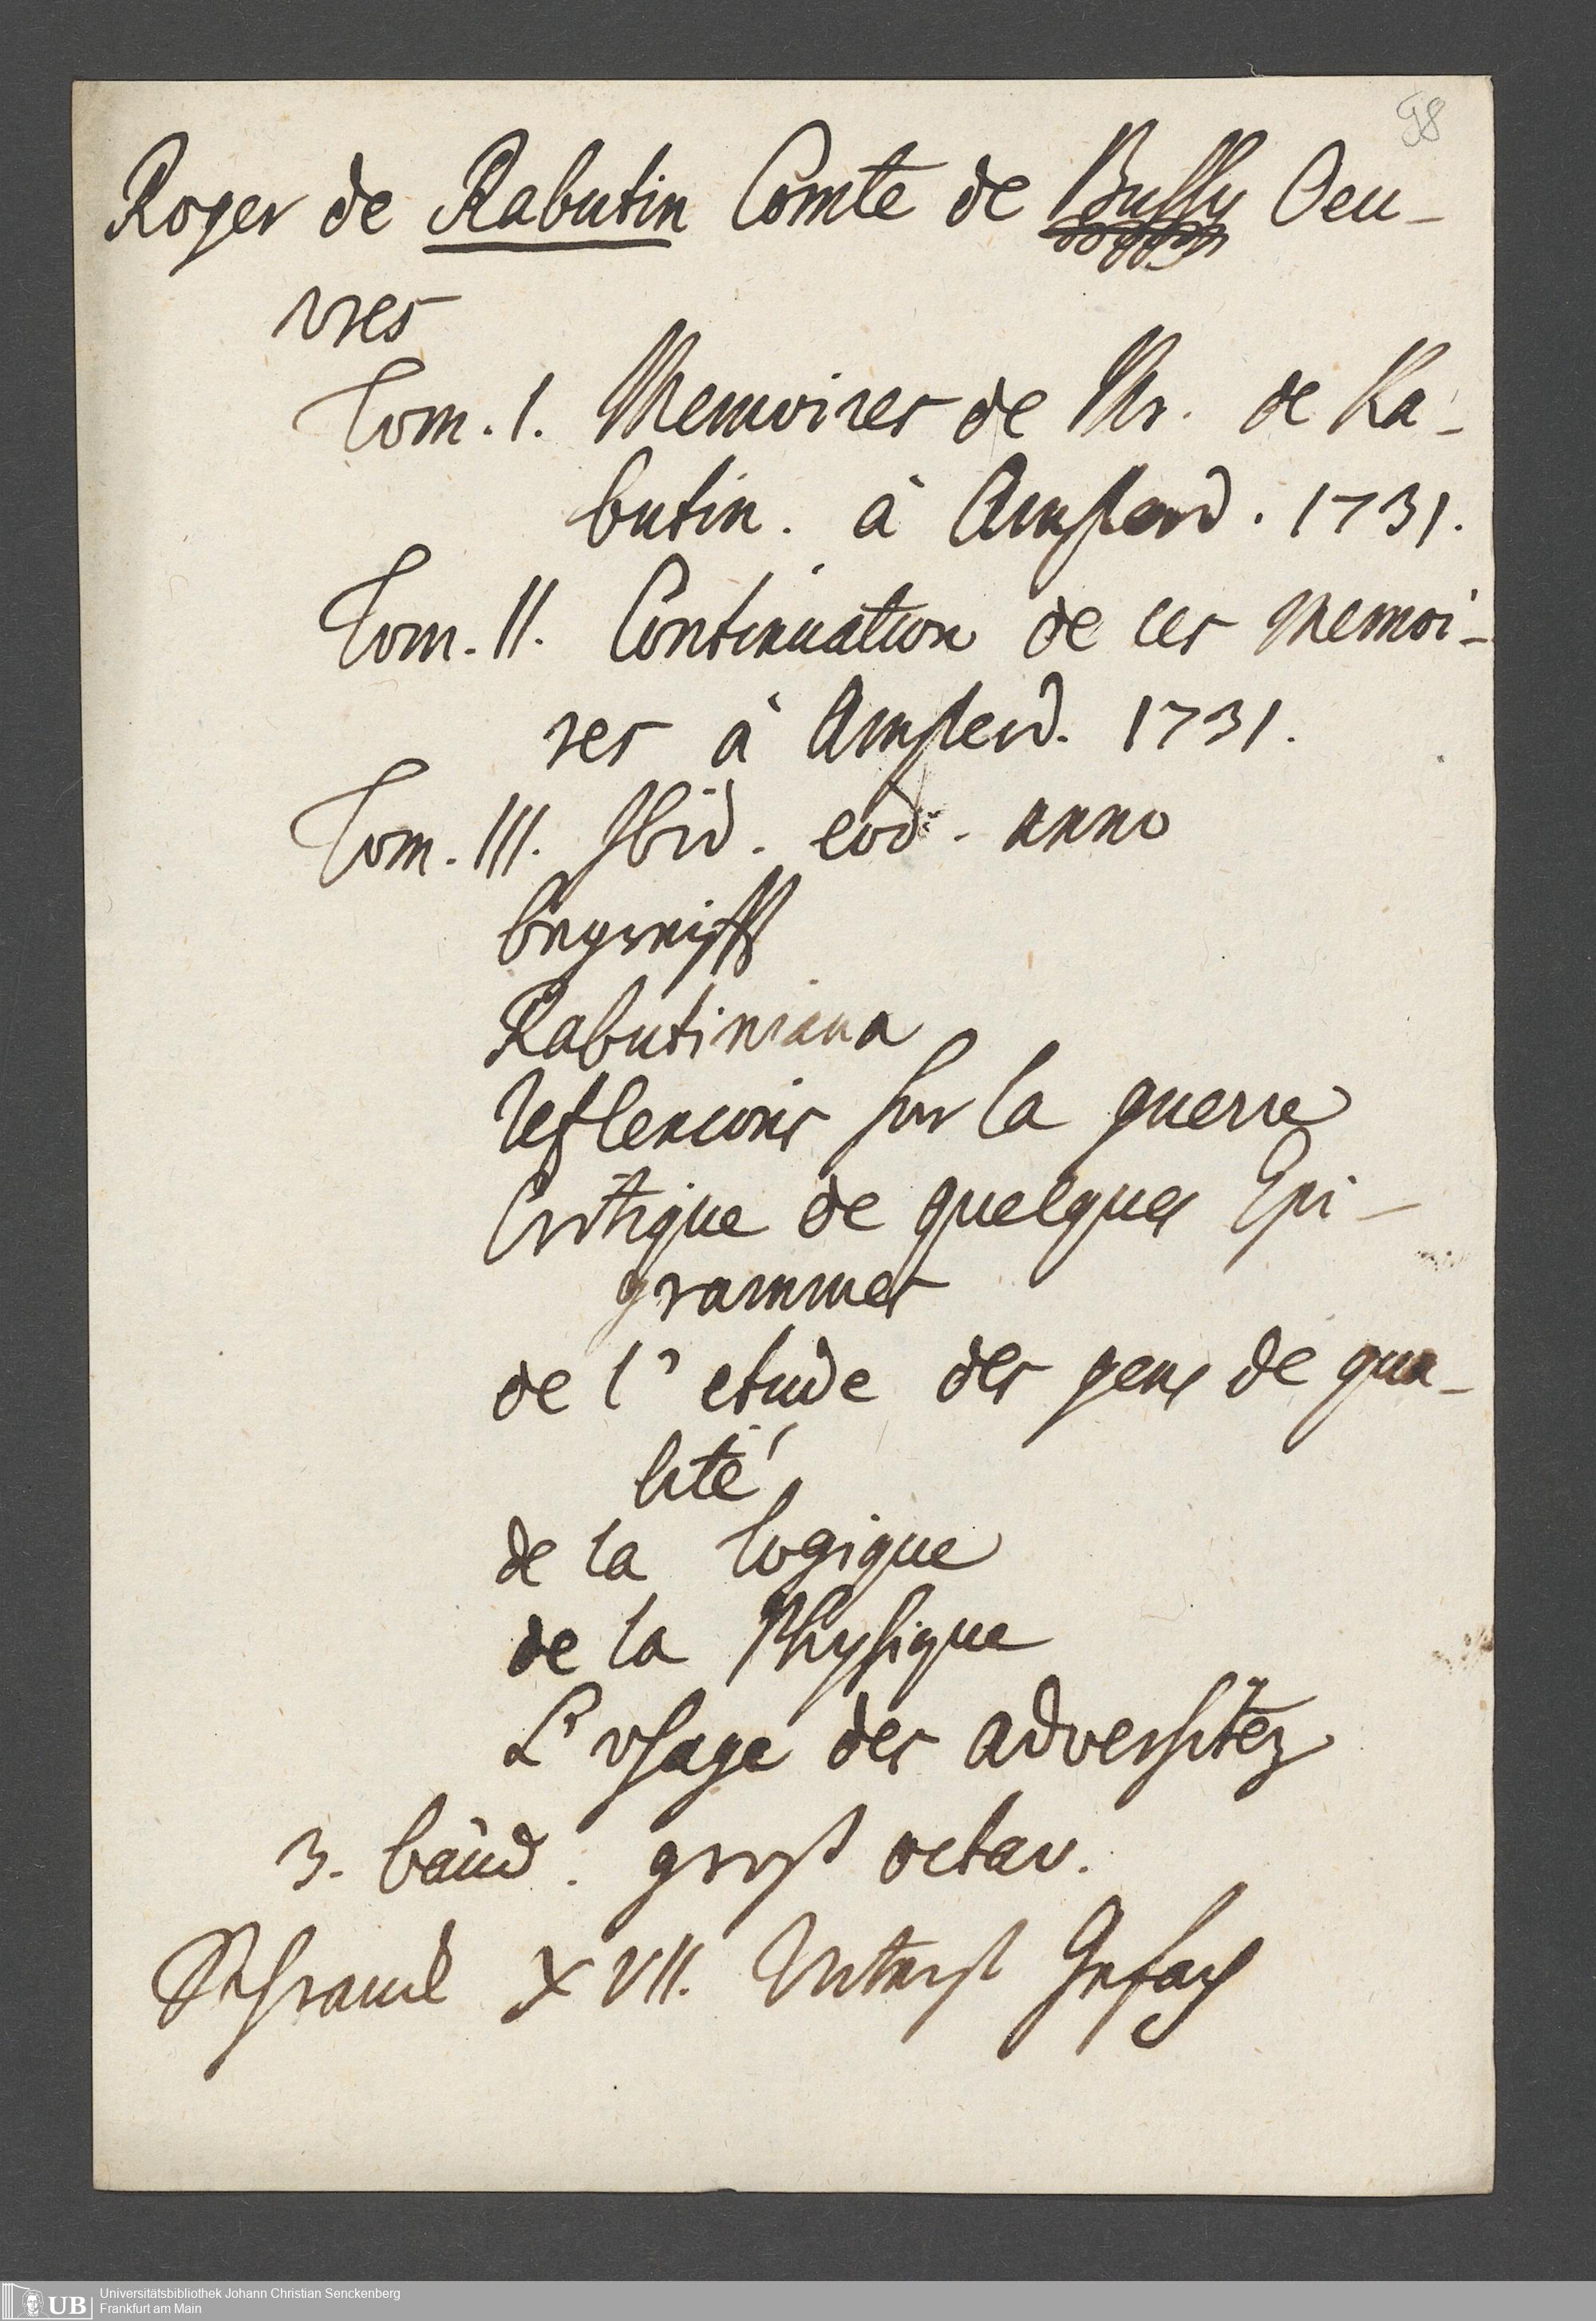 98
Roger de Rabutin Comte de Bussy Oeu-
vres
Tom. I. Memoires de Mr. de Ra-
butin. à Amsterd. 1731.
Tom. II. Continuation de ces Memoi-
res à Amsterd. 1731.
Tom. III. Ibid. eod. anno
begreifft
Rabutiniana
Reflexions sur la guerre
Critique de quelques Epi-
grammes
de l'etude des gens de qua-
lité
de la logique
de la Physique
L'usage des adversitéz
3. bänd. groß octav.
Schranck XVII. Unterst Gefach
UB Universitätsbibliothek Johann Christian Senckenberg
Frankfurt am Main